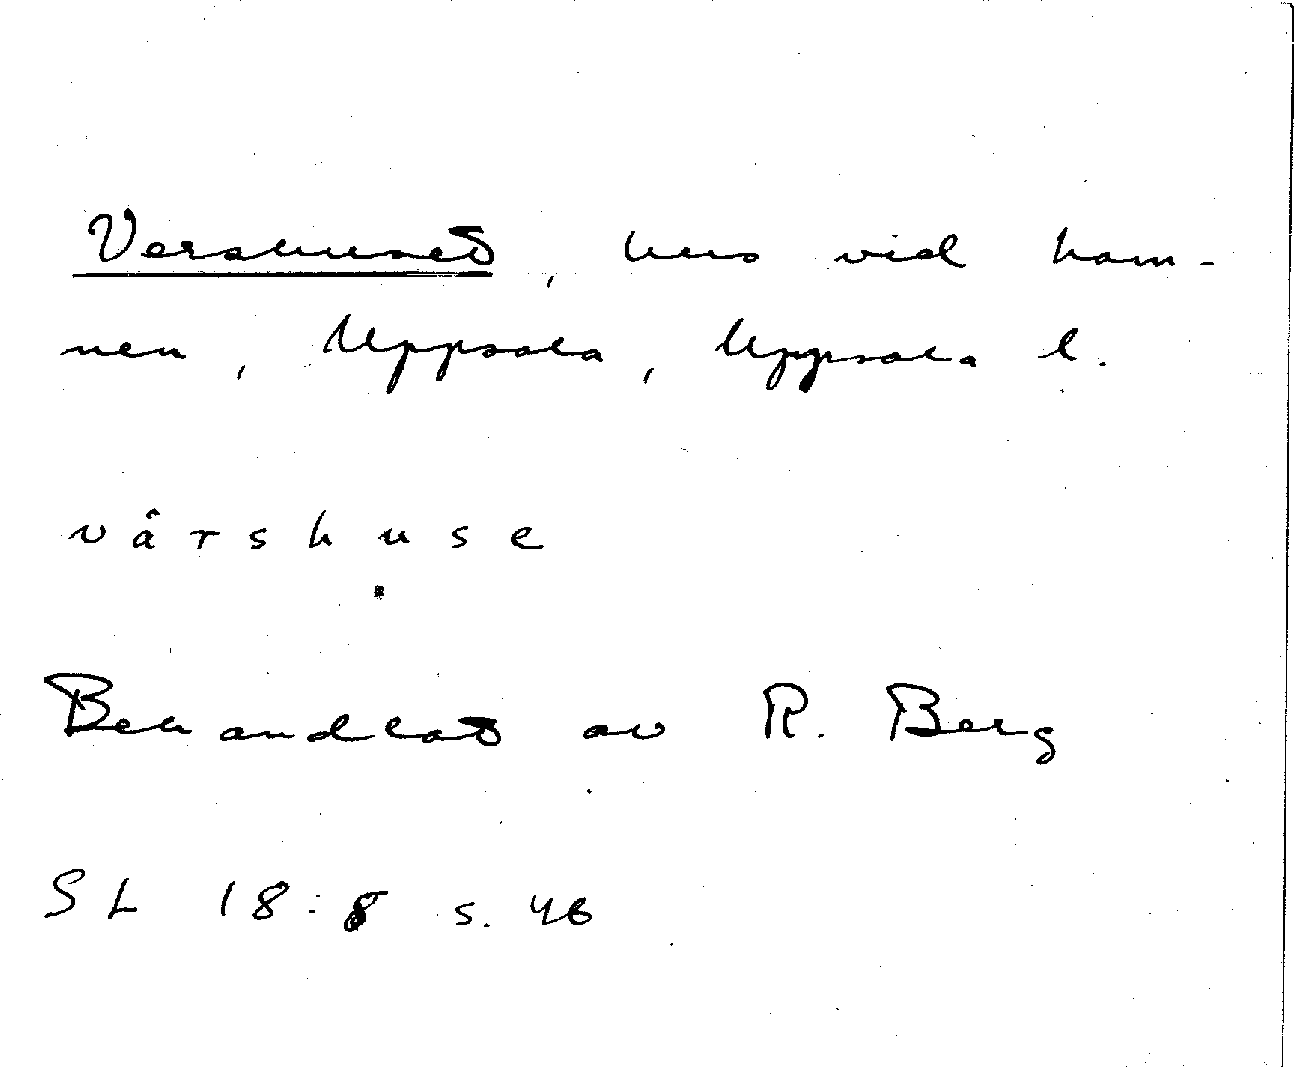 Vershuset, hus vid ham-
nen, Uppsala, Uppsala l.
vârshuse
Behandlat av R. Berg
SL 18:8 s. 46